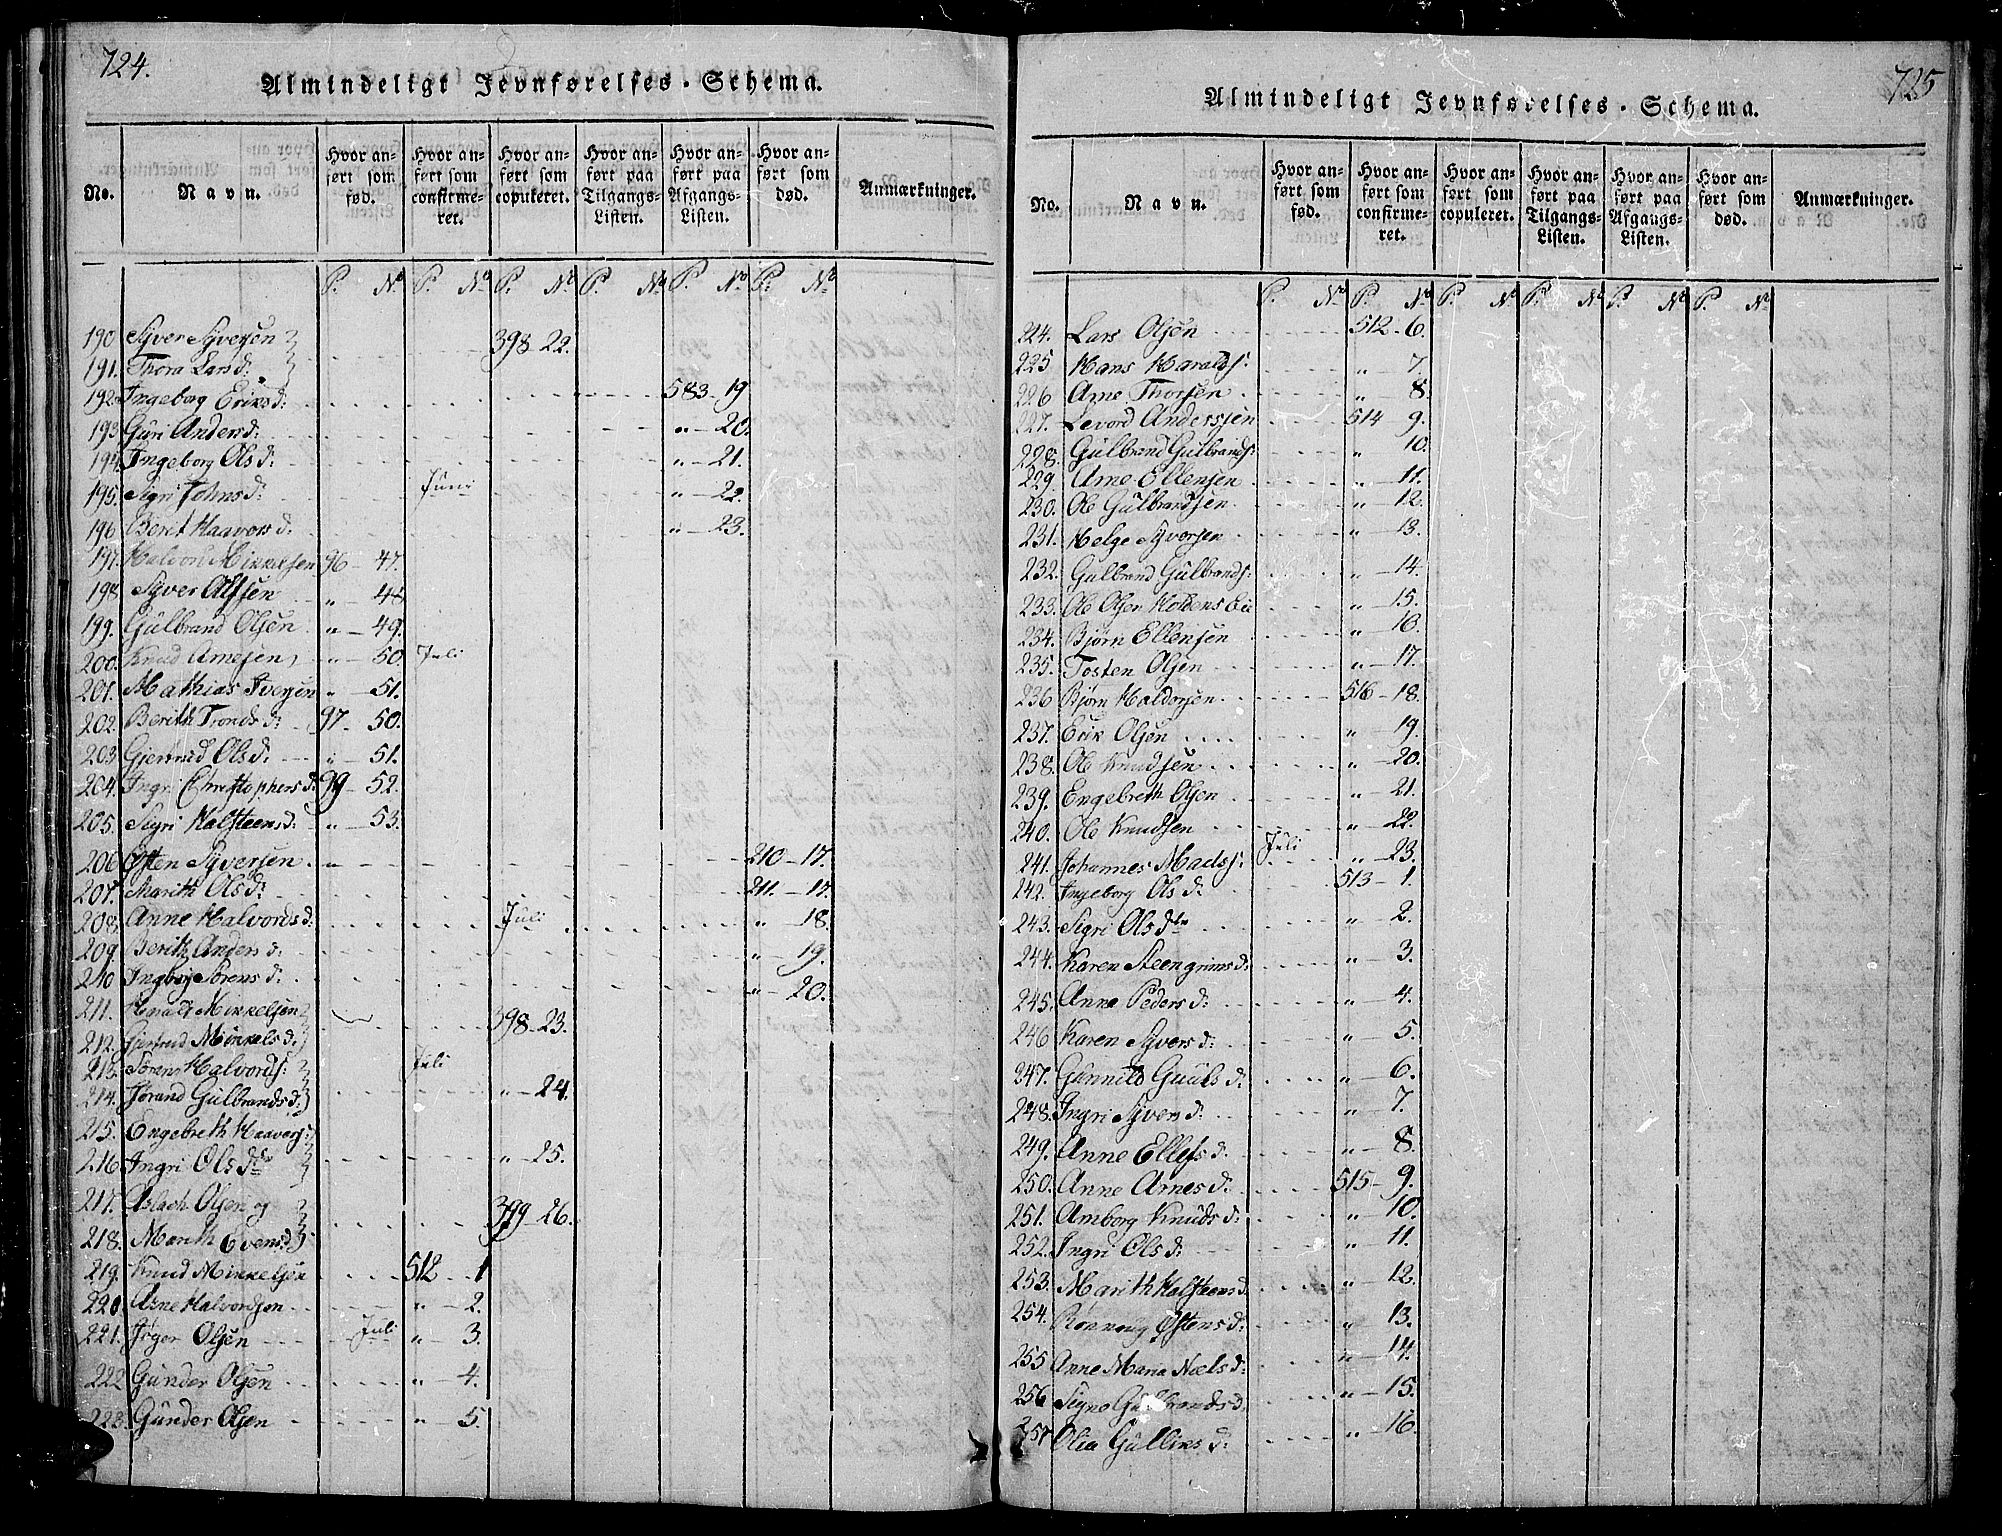 724.
Almindeligt Jevnførelses-Schema.
No. Navn. Hvor anført som fød. Hvor anført som confirmeret. Hvor anført som copuleret. Hvor anført paa Tilgangs-Listen. Hvor anført paa Afgangs-Listen. Hvor anført som død. Anmærkninger.
P. No P. No P. No P. No P. No P. No
190 Syver Syversen
398 22.
191. Thora Larsd:
192. Ingeborg Eriksd: 583 - 19
193 Guri Andersd: " - 20.
194 Ingeborg Olsd: " - 21.
195. Sigri Johnsd: Juni " - 22.
196 Berit Haavorsd: " - 23.
197. Halvor Mikkelsen 96 - 47.
198 Syver Alfsen " - 48
199. Gulbrand Olsen " - 49.
200. Knud Arnesen " - 50 Juli
201. Mathias Iversen " - 51.
202. Berith Tronds d: 97 - 50.
203 Giertrud Olsd: " - 51.
204. Ingri Christophersd: 99 - 52.
205. Sigri Halsteensd: " - 53.
206 Østen Syversen 210 - 17.
207. Marith Olsd: 211. - 17.
208 Anne Halvordsd: Juli " 18.
209. Berith Anders d: " - 19.
210 Ingborg Sørens d: " - 20.
211. Mikkelsen
398 - 23.
212. Giertrud Mikkels d:
213. Søren Halvords: Juli
214. Jørand Gulbrandsd: " - 24.
215. Engebreth Haavors:
216 Ingri Olsdtr " - 25.
217. Aslach Olsen og
399 - 26.
218. Marith Evensd:
219. Knud Mikkelsen 512 1
220. Arne Halvordsen " - 2.
221. Jøger Olsen Juli " - 3.
222 Gunder Olsen " - 4.
223. Gunder Olsen " 5.
725
Almindeligt Jevnførelses-Schema.
No. Navn. Hvor anført som fød. Hvor anført som confirmeret. Hvor anført som copuleret. Hvor anført paa Tilgangs-Listen. Hvor anført paa Afgangs-Listen. Hvor anført som død. Anmærkninger.
P. No P. No P. No P. No P. No P. No
224. Lars Olsen 512 - 6.
225 Hans Haralds: " - 7.
226 Arne Thorsen " - 8.
227. Levord Anderssen 514 - 9.
228. Gulbrand Gulbrands: " 10.
229. Arne Ellensen " - 11.
230. Ole Gulbrandsen " - 12.
231. Helge Syversen " - 13.
232. Gulbrand Gulbrands: " - 14.
233. Ole Olsen Holdens Eie " - 15.
234. Bjørn Ellensen " - 16.
235. Tosten Olsen " - 17.
236 Bjørn Haldorsen 516 - 18.
237. Erik Olsen " - 19.
238. Ole Knudsen " - 20.
239. Engebreth Olsen " - 21.
240. Ole Knudsen " - 22.
241. Johannes Mads: Juli " - 23.
242. Ingeborg Ols d: 513 - 1.
243. Sigri Ols dtr " - 2.
244. Karen Steengrims d: " - 3.
245. Anne Peders d: " - 4.
246 Karen Syvers d: " - 5.
247. Gunnild Guuls d: " - 6.
248. Ingri Syvers d: " - 7.
249. Anne Ellefs d: " - 8.
250. Anne Arnes d: 515 - 9.
251. Amborg Knuds d: " - 10.
252. Ingri Ols d: " - 11.
253. Marith Halsteens d: " - 12.
254. Rønnoug Østens d: " 13.
255 Anne Maria Næls d: " - 14.
256 Signe Gulbrands d: " - 15.
257 Olia Gulliks d: " - 16.